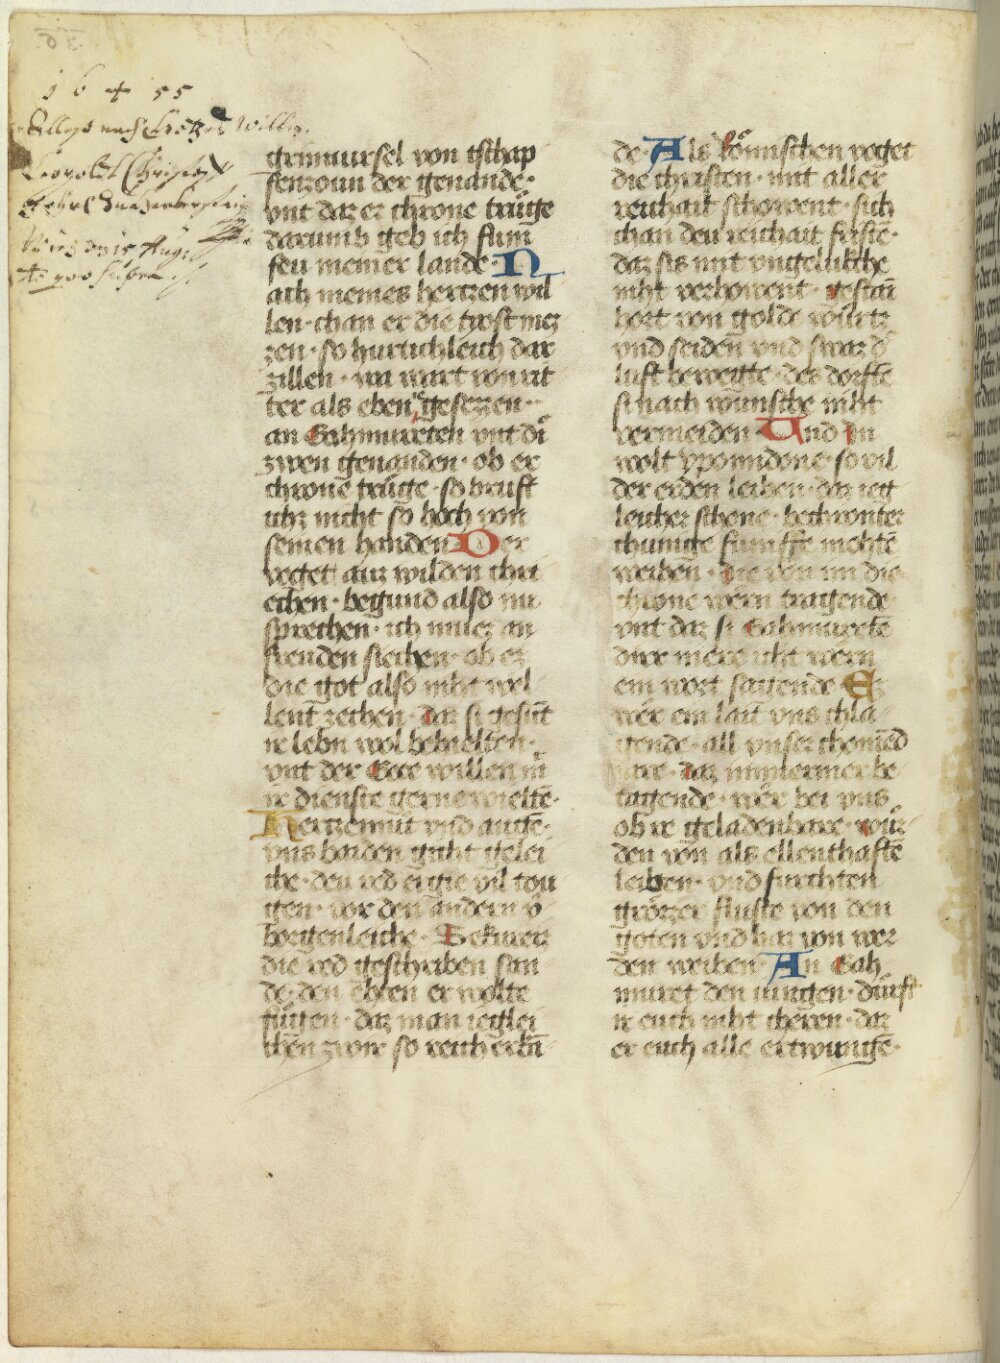 1 6 + 55
grimuursel von tschap
fenzoun der genande·
vnt daz er chrone trüge
darumb geb ich fium
feu meiner lande· N
ach meines hertzen wil
len· chan er die tyost mez
zen· so hurtichleich dar
zillen· wa wart von rit
ter als eben gesezzen·
an Gahmureten vnt di
zwen genanden· ob er
chrone trüge· so bruft
uhz nicht so hoch von
seinen handen Der
voget auz wilden chri
echen· begund also nu
sprechen· ich muez an
freuden siechen· ob ez
die got also niht wel
lent zechen· daz si gesunt
ir lebn wol behielten·
vnt der Ecce willen in
ir dienste gerne wielte·
Hertzemut vnd auge·
vns baiden giht gelei
che· den red ergie vil tou
gen· vor den andern v
borgenleiche· Sekurez
die red geschriben san
de· den ehren er wolte
fügen· daz man ieglei
chen zwir so reich erka
de· Als Römischen voget
die christen· mit aller
reichait schowent· sich
chan deu reichait friste·
daz sis mit vngelukche
niht verhowent· gestain
hort von golde würtz
vnd seiden vnd swaz d
luft bewegte· des dorfte
si nach wunsche niht
vermeiden Und im
wolt ypomidone· so vil
der erden leihen· daz ieg
leicher schone· bechronter
chunige fiunffe mehte
weihen· die von im die
chrone wern tragende
vnt daz si Gahmurete
dirr mere iht wern
ein wort sagende Ez
wer ein lait vns chla
gende· all vnser chomed
are· daz immermer be
tagende· wer bei vns
ob ir geladenbare· wur
den von als ellenthafte
leiben· vnd furchten
grözzer fluste von den
goten vnd baz von wer
den weiben· An Gah
muret den iungen· dürft
ir euch niht cheren· daz
er euch alle ertwunge·